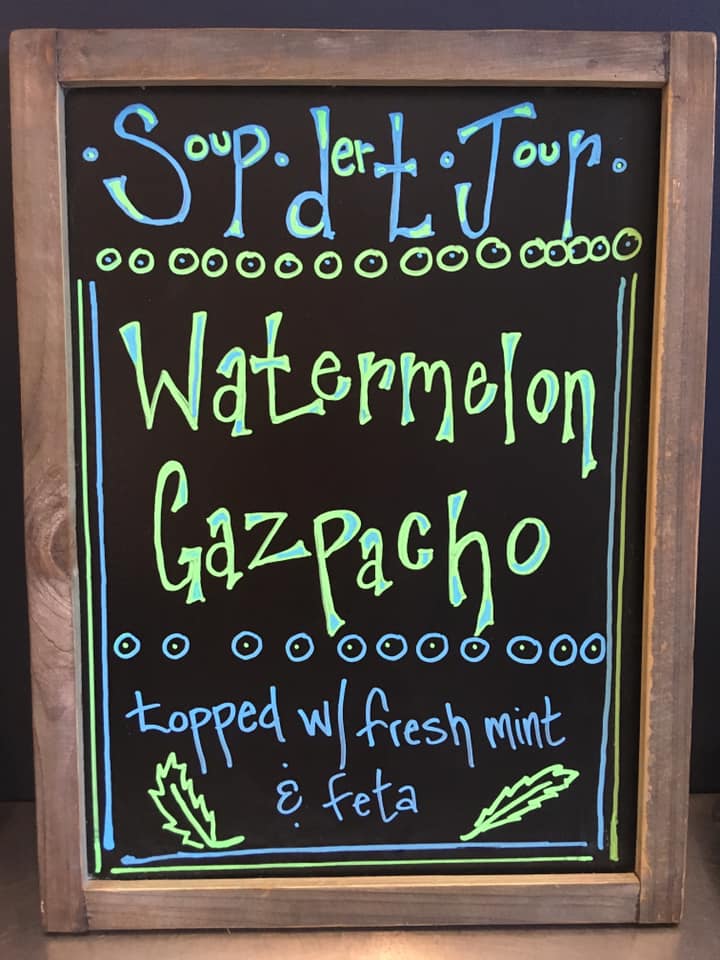 · Soup · dert · Jour ·
Watermelon
Gazpacho
topped w/ fresh mint
& feta